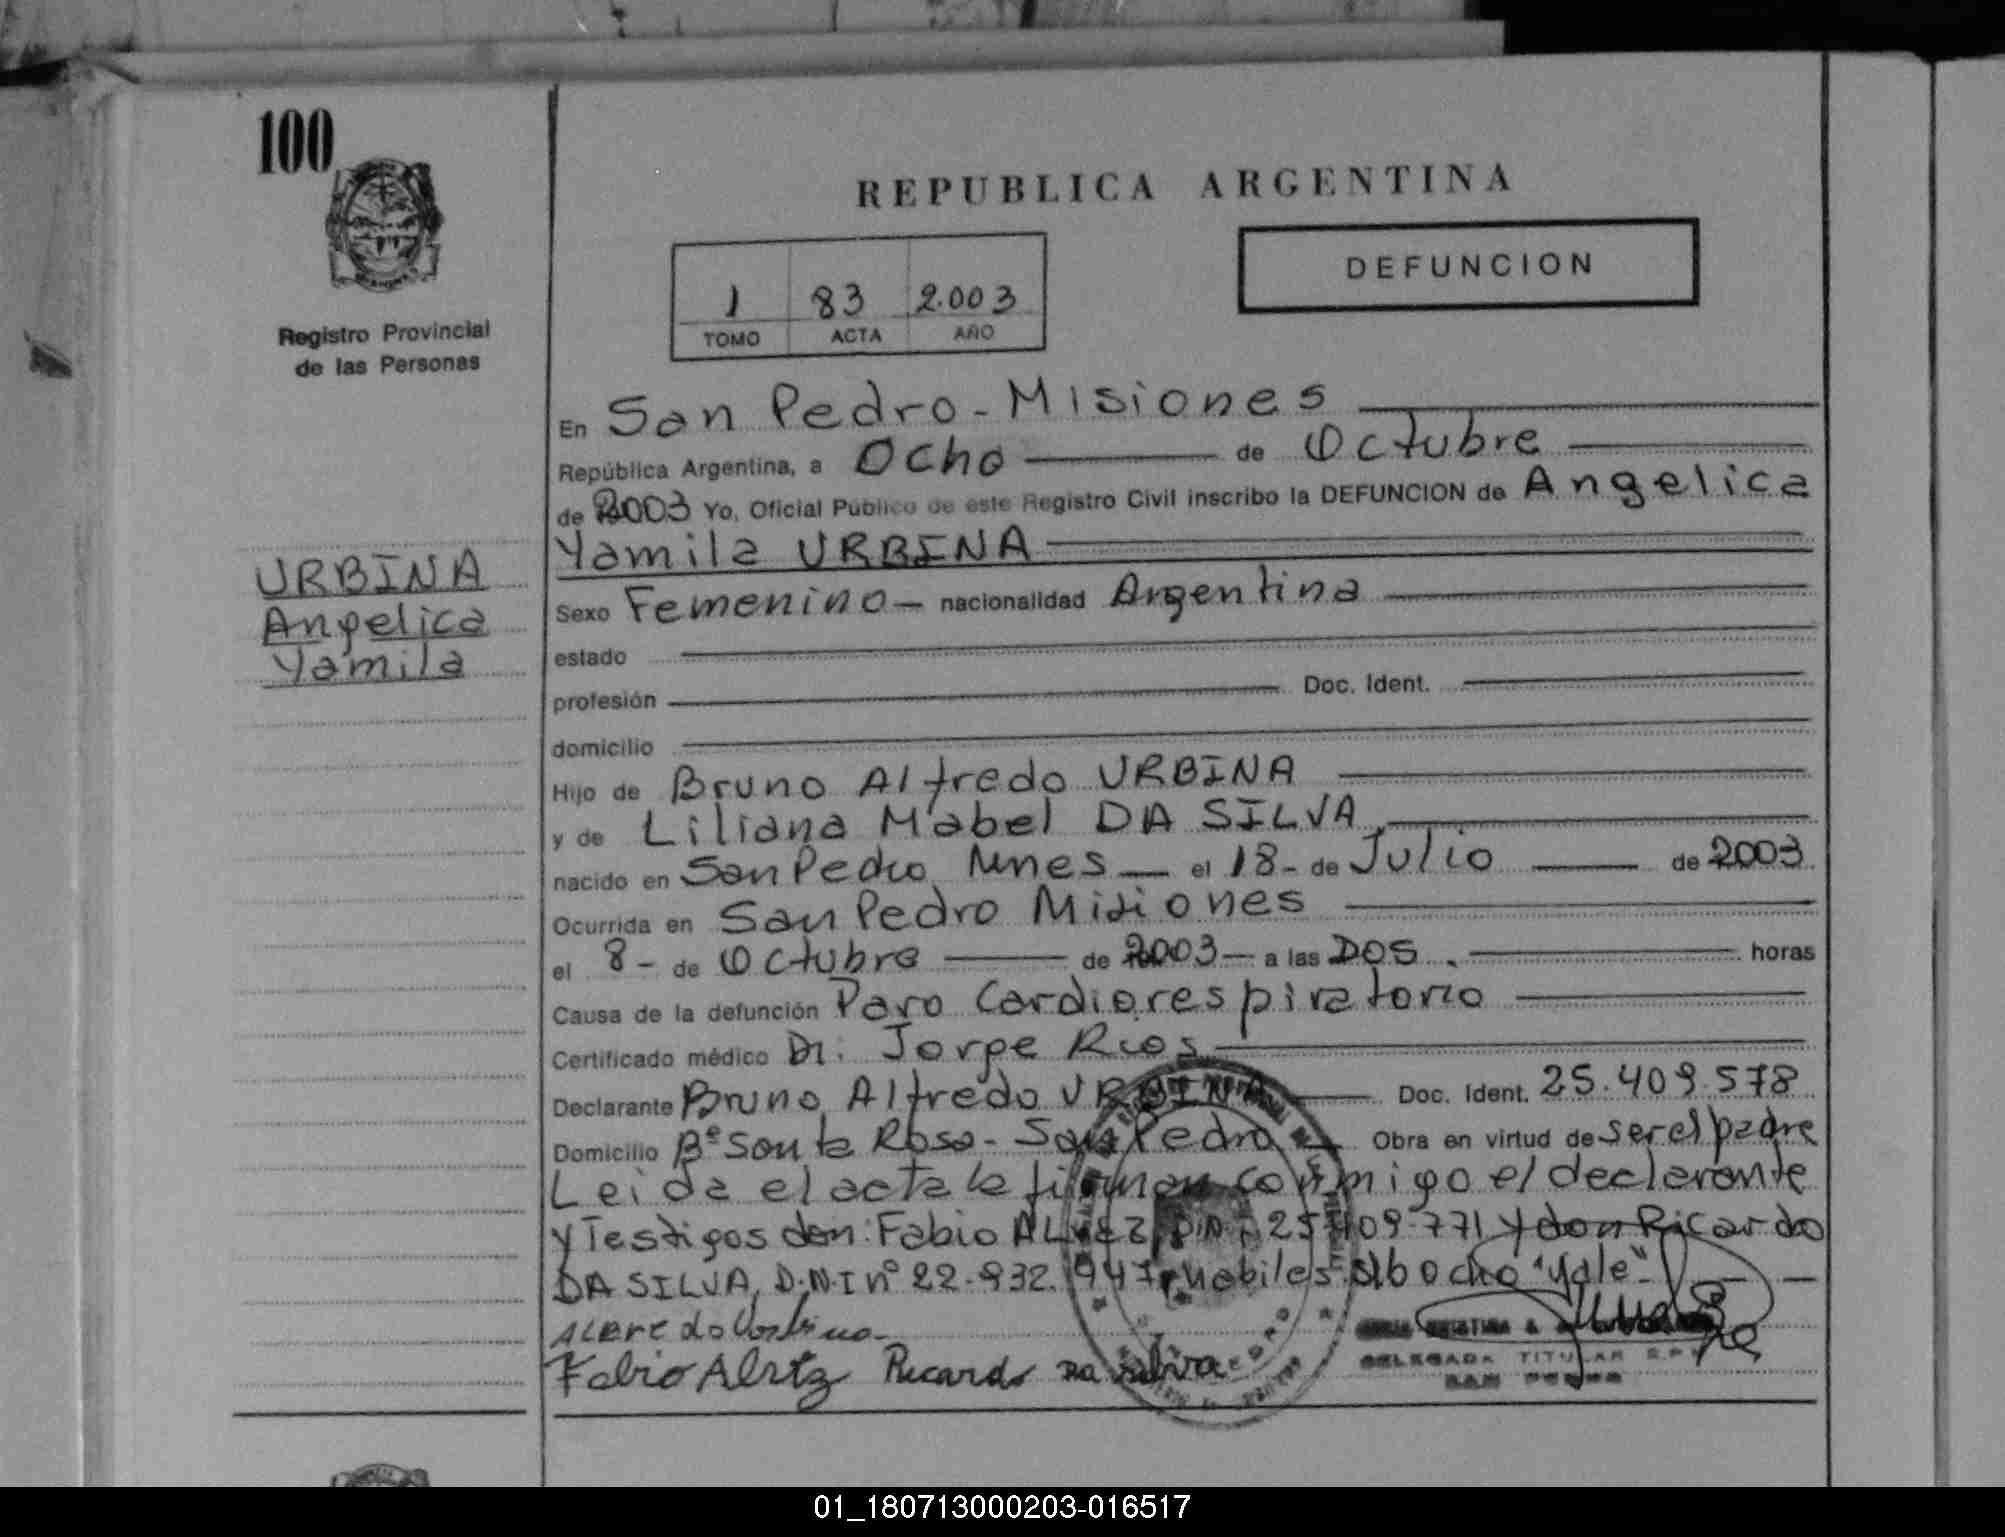 100
REPUBLICA ARGENTINA
DEFUNCION
1 83 2.003
TOMO ACTA AÑO
Registro Provincial
de las Personas
En San Pedro - Misiones
República Argentina, a Ocho de Octubre
de 2003 Yo, Oficial Público de este Registro Civil inscribo la DEFUNCION de Angelica
Yamila URBINA
URBINA
Angelica
Yamila
Sexo Femenino - nacionalidad Argentina
estado
profesión Doc. Ident.
domicilio
Hijo de Bruno Alfredo URBINA
y de Liliana Mabel DA SILVA
nacido en San Pedro Mnes - el 18 - de Julio de 2003
Ocurrida en San Pedro Misiones
el 8 - de Octubre de 2003 - a las DOS . horas
Causa de la defunción Paro Cardiorespiratorio
Certificado médico Dr. Jorge Rios
Declarante Bruno Alfredo URBINA Doc. Ident. 25.409.578
Domicilio Bº Santa Rosa - San Pedro Obra en virtud de ser el padre
Leida el acta la firman conmigo el declarante
y Testigos don: Fabio ALVEZ 25.409.771 y don Ricardo
DA SILVA, D.N.I nº 22.932.947, habiles s/b ocho "Vale" -
Fabio Alvez Ricardo Da Silva
DELEGADA TITULAR R.P.P.
SAN PEDRO
01_180713000203-016517